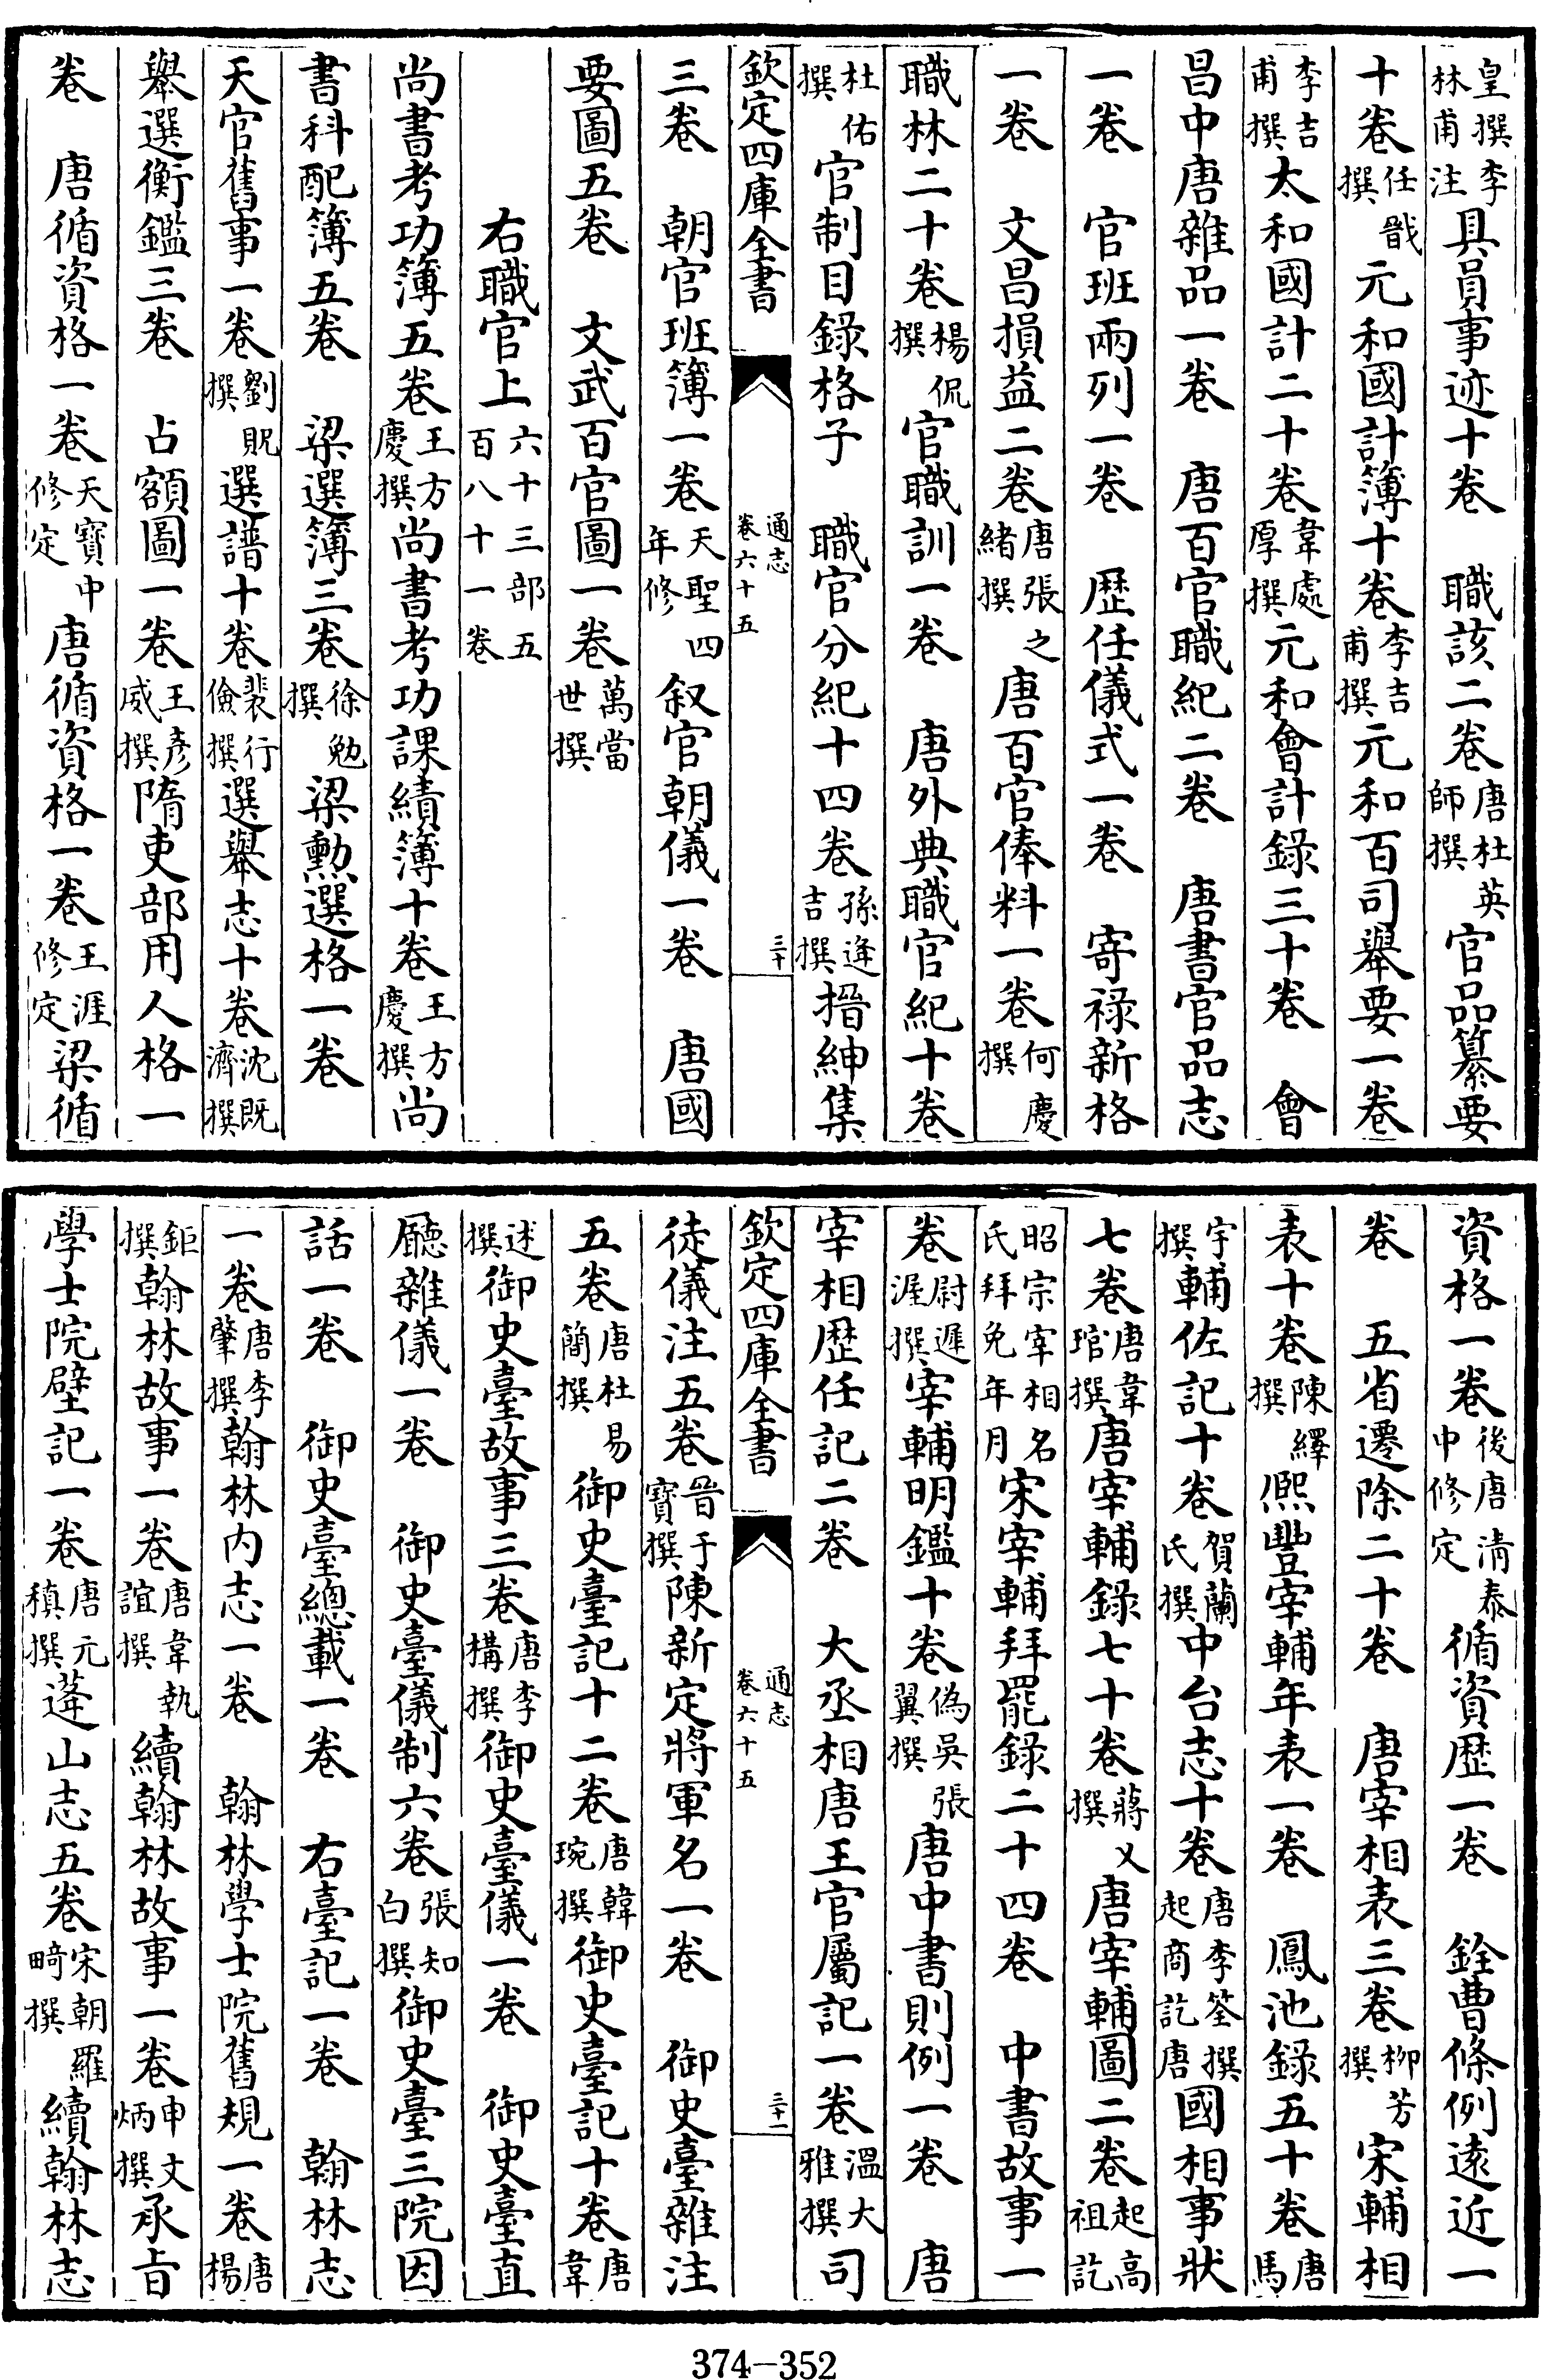 皇撰李林甫注具員事迹十卷　職該二卷唐杜英師撰官品纂要
十卷任戬撰元和國計簿十卷李吉甫撰元和百司舉要一卷
李吉甫撰太和國計二十卷韋處厚撰元和會計錄三十卷　會
昌中唐雜品一卷　唐百官職紀二卷　唐書官品志
一卷　官班兩列一卷　歴任儀式一卷　寄禄新格
一卷　文昌損益二卷唐張之緒撰唐百官俸料一卷何慶撰
職林二十卷楊侃撰官職訓一卷　唐外典職官紀十卷
杜佑撰官制目錄格子　職官分紀十四卷孫逄吉撰搢紳集
欽定四庫全書　通志卷六十五　三十
三卷　朝官班簿一卷天聖四年修叙官朝儀一卷　唐國
要圖五卷　文武百官圖一卷萬當世撰
右職官上六十三部五百八十一卷
尚書考功簿五卷王方慶撰尚書考功課績簿十卷王方慶撰尚
書科配簿五卷　梁選簿三卷徐勉撰梁勲選格一卷
天官舊事一卷劉貺撰選譜十卷裴行儉撰選舉志十卷沈既濟撰
舉選衡鑑三卷　占額圖一卷王彥威撰隋吏部用人格一
卷　唐循資格一卷天寶中修定唐循資格一卷王涯修定梁循
資格一卷後唐清泰中修定循資歴一卷　銓曹條例遠近一
卷　五省遷除二十卷　唐宰相表三卷柳芳撰宋輔相
表十卷陳繹撰熙豐宰輔年表一卷　鳳池録五十卷唐馬
宇撰輔佐記十卷賀蘭氏撰中台志十卷唐李筌撰起商訖唐國相事狀
七卷唐韋琯撰唐宰輔錄七十卷蔣乂撰唐宰輔圖二卷起高祖訖
昭宗宰相名氏拜免年月宋宰輔拜罷錄二十四卷　中書故事一
卷尉遲渥撰宰輔明鑑十卷偽吳張翼撰唐中書則例一卷　唐
宰相歴任記二卷　大丞相唐王官屬記一卷溫大雅撰司
欽定四庫全書　通志卷六十五　三十一
徒儀注五卷晉于寶撰陳新定將軍名一卷　御史臺雜注
五卷唐杜易簡撰御史臺記十二卷唐韓琬撰御史臺記十卷唐韋
述撰御史臺故事三卷唐李構撰御史臺儀一卷　御史臺直
廳雜儀一卷　御史臺儀制六卷張知白撰御史臺三院因
話一卷　御史臺總載一卷　右臺記一卷　翰林志
一卷唐李肇撰翰林内志一卷　翰林學士院舊規一卷唐楊
鉅撰翰林故事一卷唐韋執誼撰續翰林故事一卷申文炳撰承旨
學士院壁記一卷唐元稹撰蓬山志五卷宋朝羅畸撰續翰林志
374-352